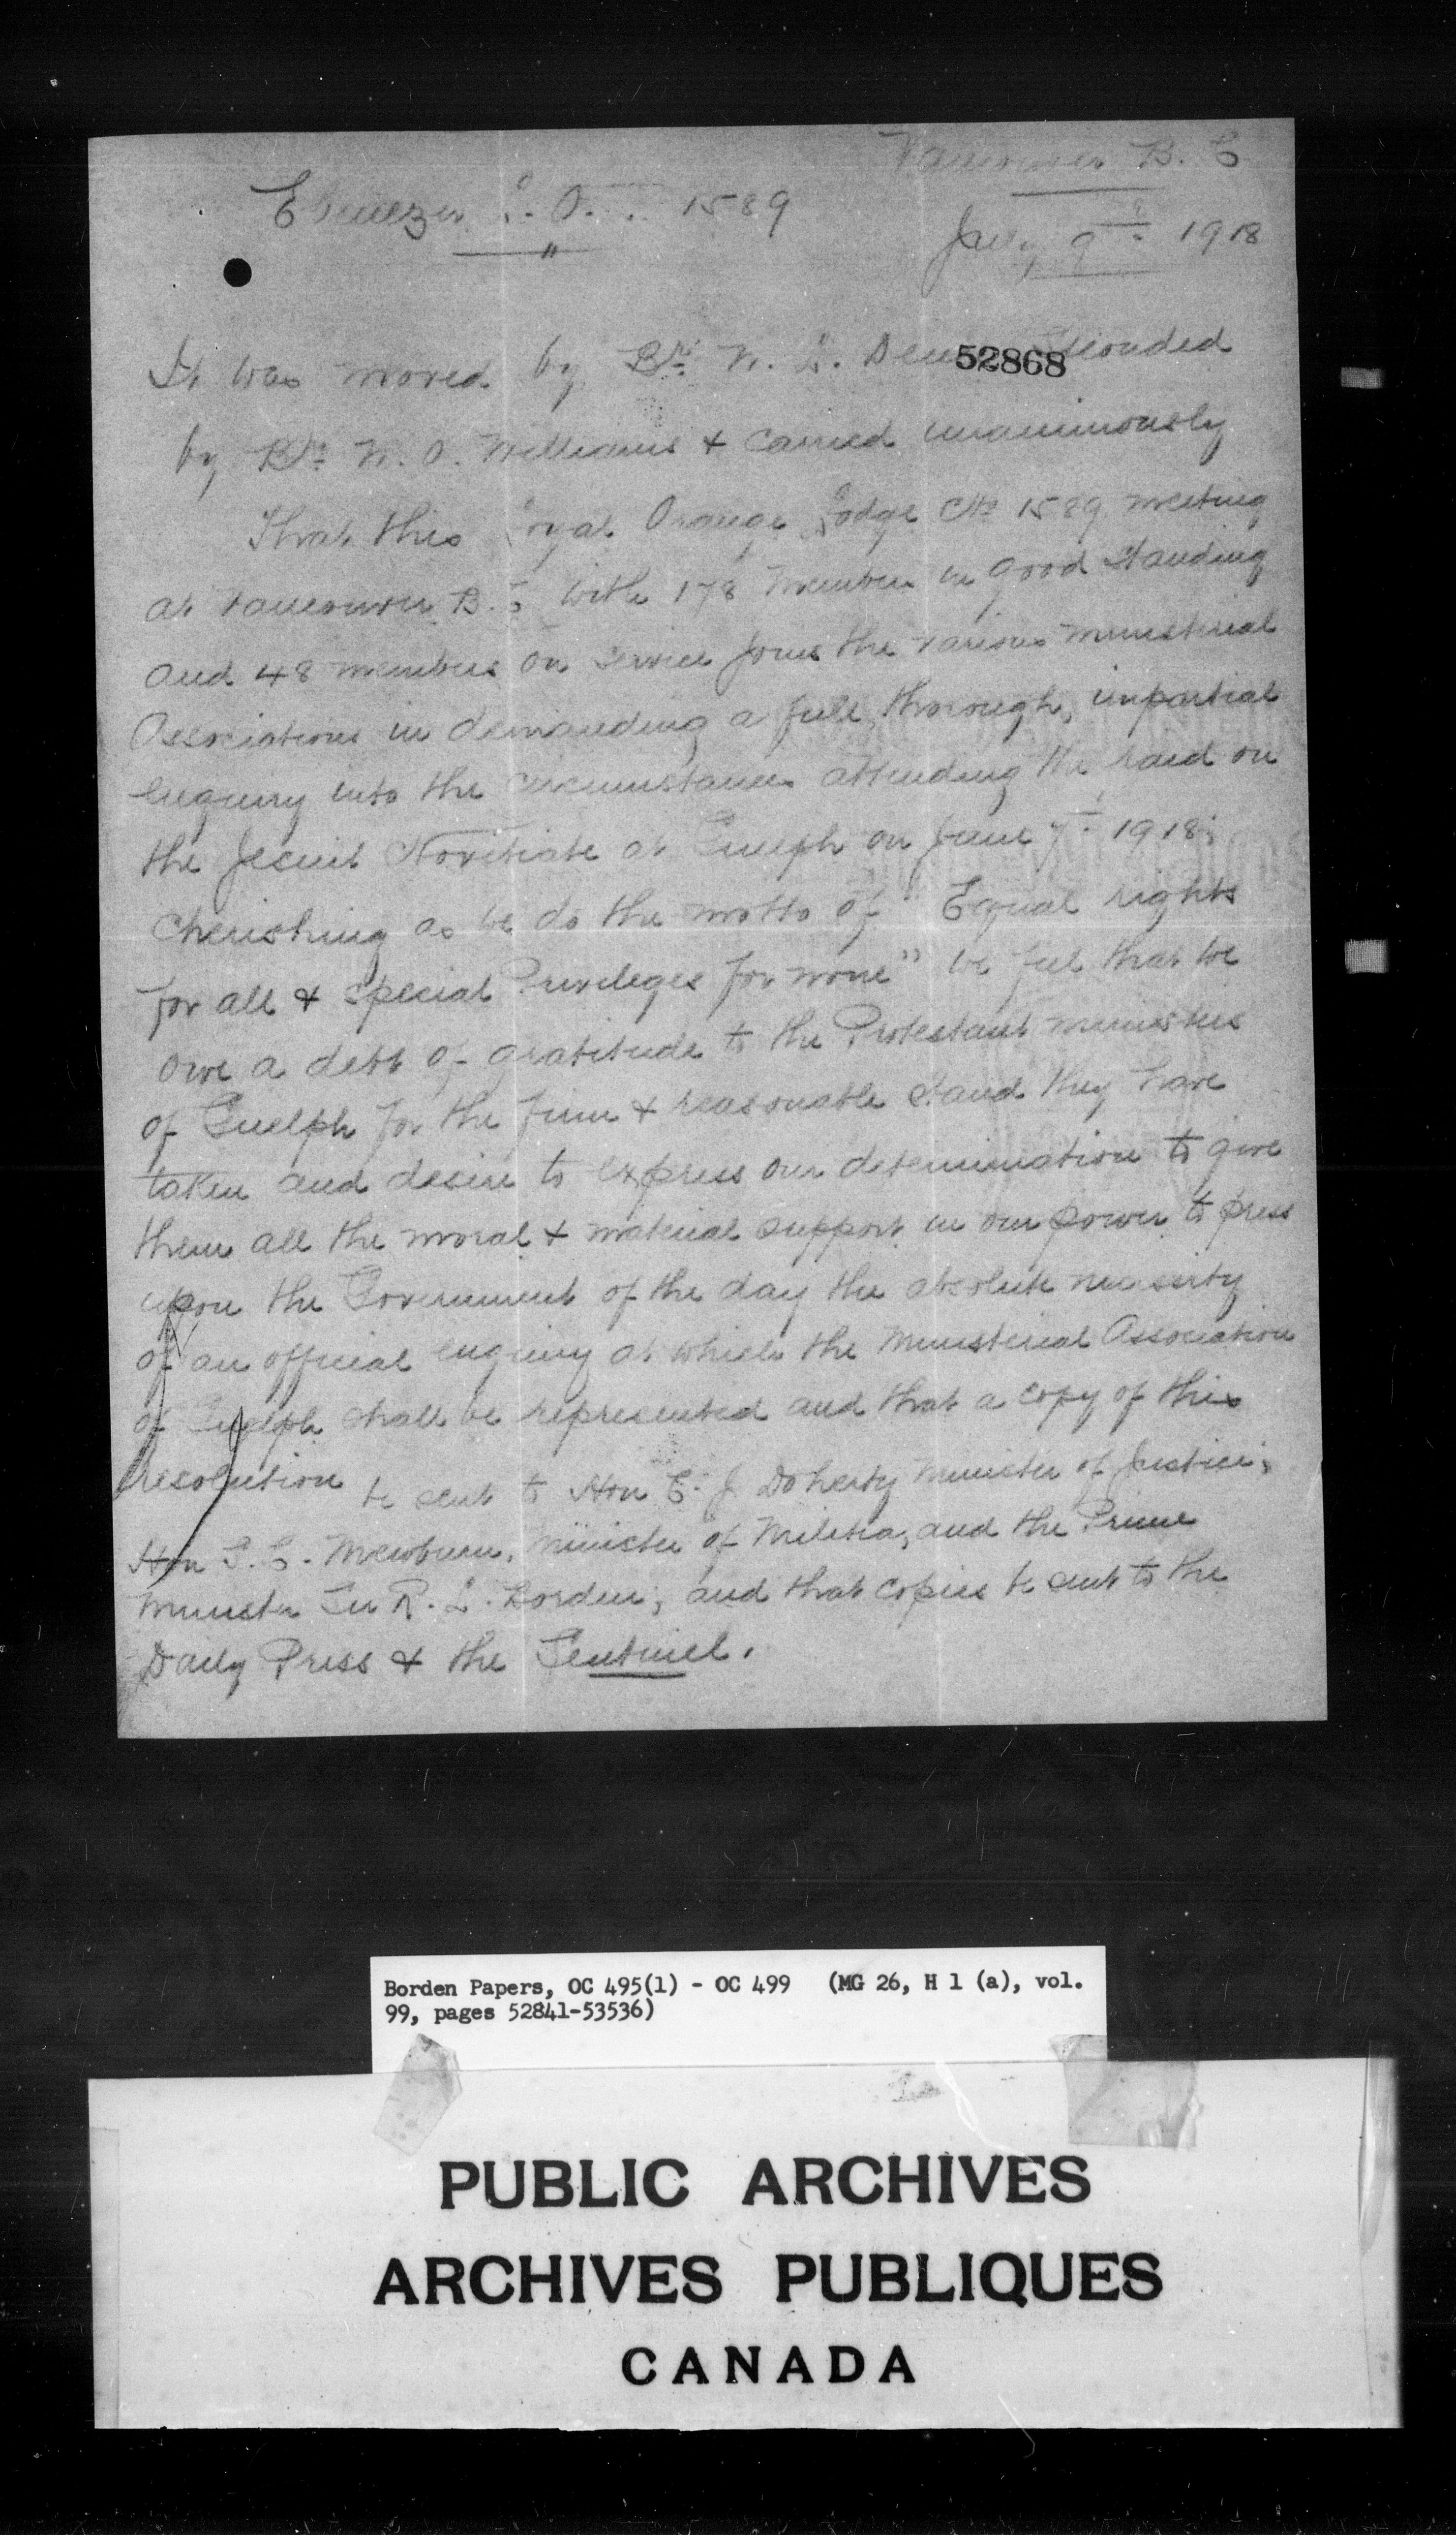 Vancouver B. C
Ebenezer L. O. L. 1589
July 9th 1918
52868
It was moved by Br. W. L. seconded
by Br. W. O. Williams & Carried unanimously
That this Loyal Orange Lodge No 1589 meeting
at Vancouver B. C with 178 members in good standing
and 48 members on service joins the various ministerial
Associations in demanding a full, thorough, impartial
enquiry into the circumstances attending the raid on
the Jesuit Novitiate at Guelph on June 7th 1918;
Cherishing as we do the motto of "Equal rights
for all & special Privileges for none" we feel that we
owe a debt of gratitude to the Protestant ministers
of Guelph for the firm & reasonable stand they have
taken and desire to express our determination to give
them all the moral & material support in our power to press
upon the Government of the day the absolute necessity
of an official enquiry at which the Ministerial Association
of Guelph shall be represented and that a copy of this
resolution be sent to Hon C. J. Doherty Minister of Justice;
Hon S. C. Mewburn, Minister of Militia, and the Prime
Minister Sir R. L. Borden; and that copies be sent to the
Daily Press & the Sentinel.
Borden Papers, OC 495(1) - OC 499 (MG 26, H 1 (a), vol.
99, pages 52841-53536)
PUBLIC ARCHIVES
ARCHIVES PUBLIQUES
CANADA